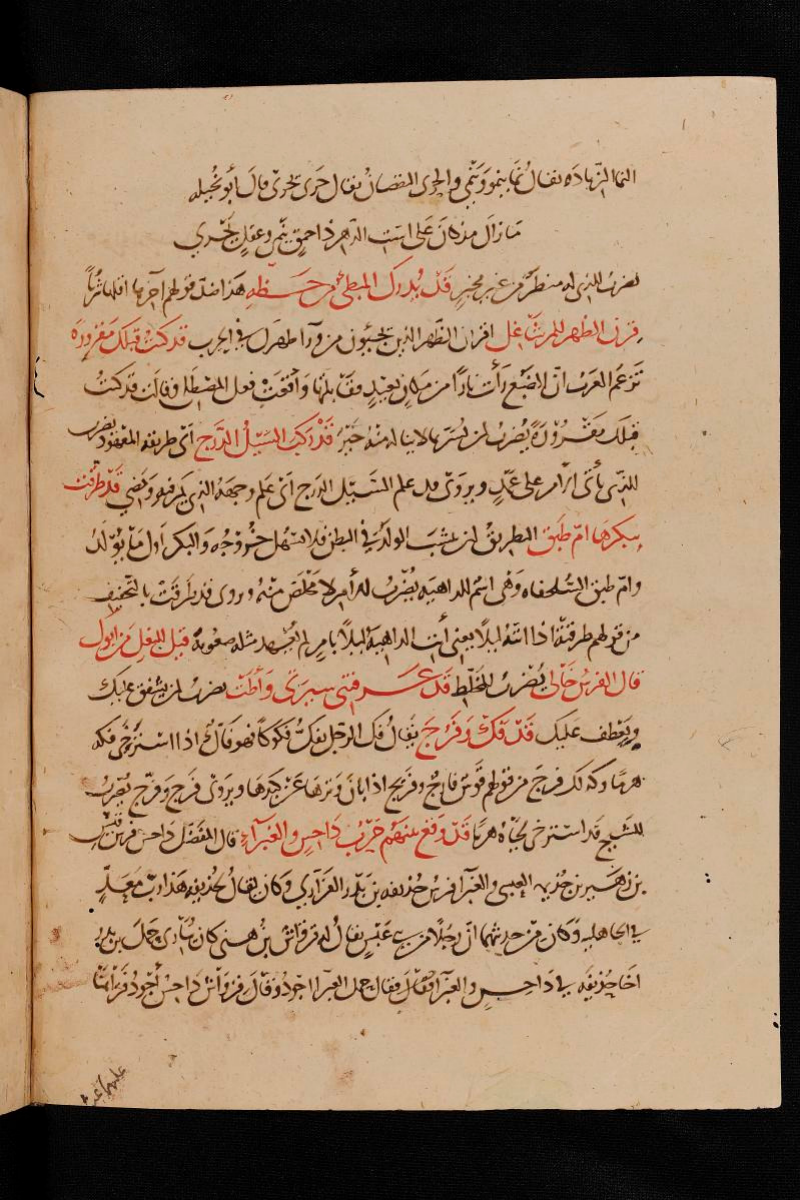 النما الزيادة يقال نما ينمو وينمي والحرى النقصان يقال حرى يحرى قال أبو نخيله
مازال مذ كان على است الدهر ذا حمق ينمي وعقل يحري
يضرب للذي له منظر من غير مخبر قد يدرك المبطئ من حظه هذا ضد قولهم آخرها اقلها شربا
قرنى الظهر للمرء شاغل اقران الظهر الذين يجيئون من ورا ظهرك في الحرب قد كنت قبلك مقرورة
تزعم العرب ان الضبع رأت نارا من مكان بعيد فقابلتها وأقعت فعل المصطلى وقالت قد كنت
قبلك مقرورة يضرب لمن يسر بما لا يناله منه خير قد ركب السيل الدرج أى طريقه المعهود يضرب
للذي يأتى الأمر على عهد ويروى قد علم السيل الدرج أى علم وجهه الذي يمر فيه ويمضي قد طرقت
ببكرها ام طبق التطريق ان ينشب الولد في البطن فلا يسهل خروجه والبكر اول ما يولد
وام طبق السلحفاه وهى اسم الداهيه يضرب للأمر لا مخلص منه ويروى قد طرقت بالتخفيف
من قولهم طرقته اذا اتيته ليلا يعنى أتت الداهية ليلا بامر لم يعهد مثله صعوبة قيل للبغل من ابوك
قال الفرس خالى يضرب للمخلط قد عرفتنى سيرتى وأطت يضرب لمن يشفق عليك
ويعطف عليك قد فك وفرج يقال فك الرجل يفك فكوكا فهو فاك اذا استرخى فكه
هرما وكذلك فرج من قولهم قوس فارج وفريج اذا بان وترها عن كبدها ويروى فرج وفرج يضرب
للشيخ قد استرخى لحياه هرما قد وقع بينهم حرب داحس والغبرآء قال المفضل داحس فرس قيس
بن زهير بن جذيمه العبسي والغبرا فرس حذيفه بن بدر الفزاري وكان يقال لحذيفه هذا رب معد
في الجاهليه وكان من حديثهما ان رجلا من بني عبس يقال له قرواش بن هني كان يمارى حمل بن بدر
اخا حذيفه في داحس والغبرا فقال حمل الغبرا اجود وقال قرواش داحس اجود فتراهنا